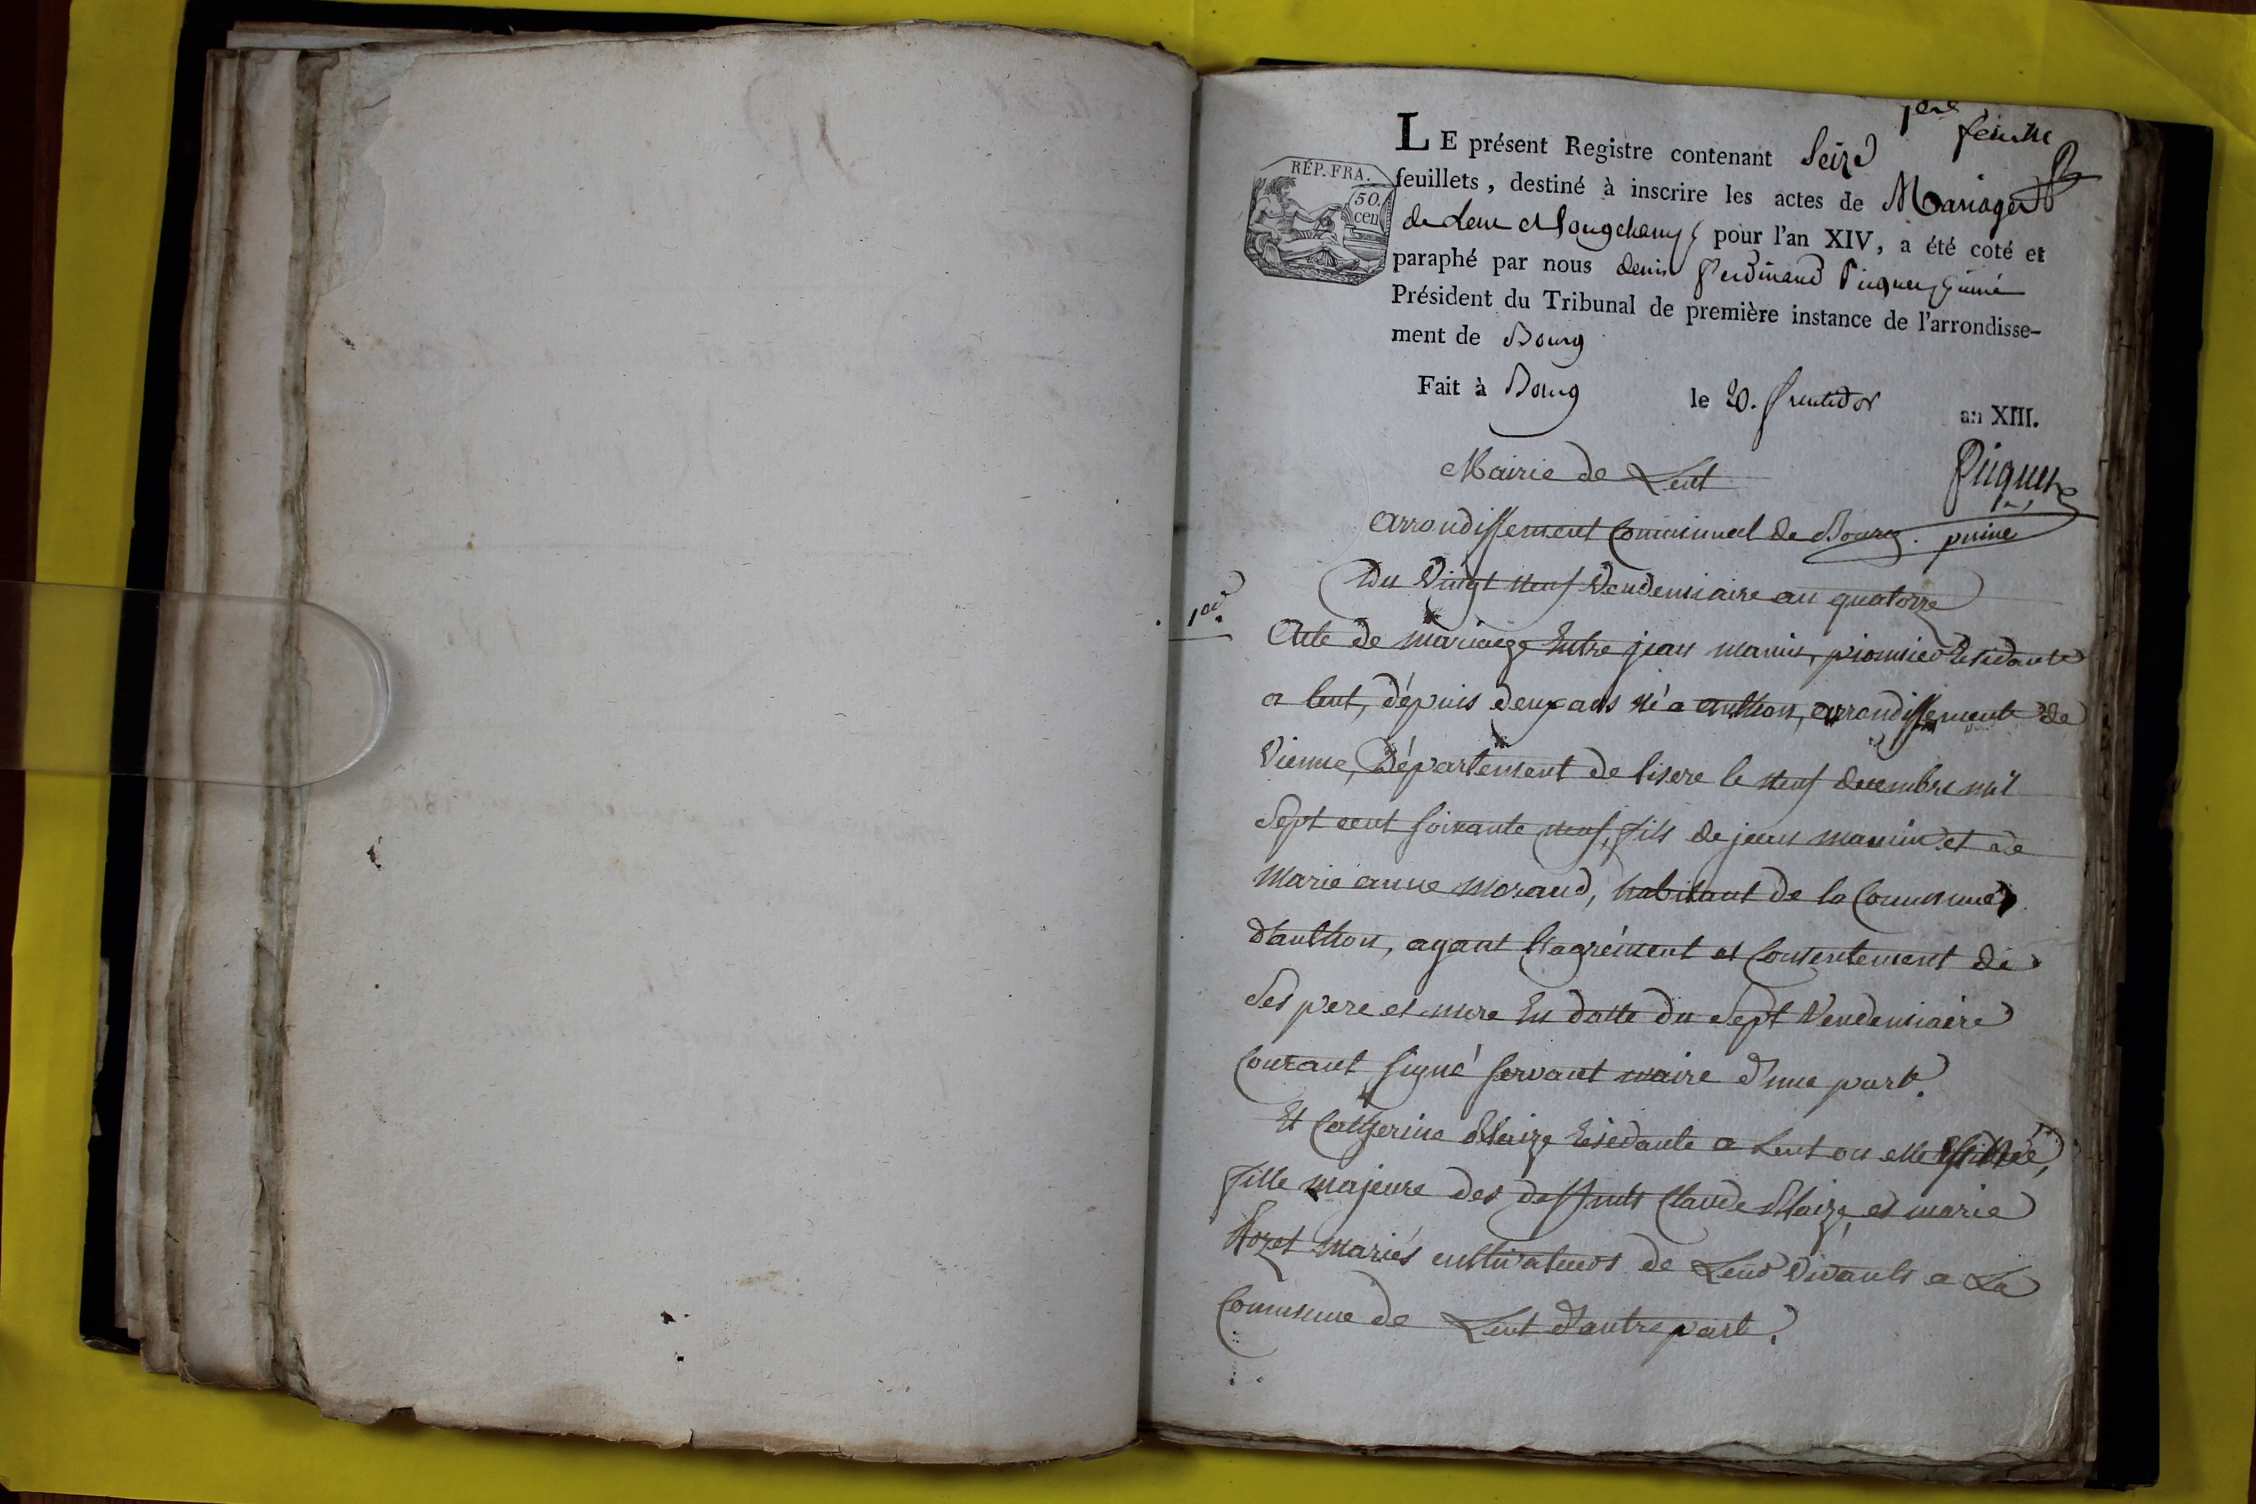 1ere
feuille
LE présent Registre contenant Seize
RÉP. FRA.
50.
cen
feuillets, destiné à inscrire les actes de Mariages
de Lent et Longchamp pour l'an XIV, a été coté et
paraphé par nous denis ferdinand Picquet puiné
Président du Tribunal de première instance de l'arrondisse-
ment de Bourg
Fait à Bourg le 20. fructidor an XIII.
Picquet
puiné
Mairie de Lent
arrondissement Communal de Bourg.
Du Vingt neuf Vendemiaire an quatorze
1er.
Acte de mariage Entre jean mamin, pionnier Residante
a lent, dépuis deux ans né a anthon, arrondissement de
Vienne, Département de lisere le neuf decembre mil
Sept cent soixante neuf, fils de jean mamin et de
Marie anne Morand, habitant de la Commune
d'anthon, ayant l'agrément et Consentement de
Ses pere et mere En datte du Sept Vendemiaire
Courant signé servant maire d'une part.
Et Catherine Blaize Residante a Lent ou elle est née,
fille majeure des deffunts Claude Blaize et marie
mariés cultivateurs de Leur Vivants a La
Commune de Lent d'autre part.